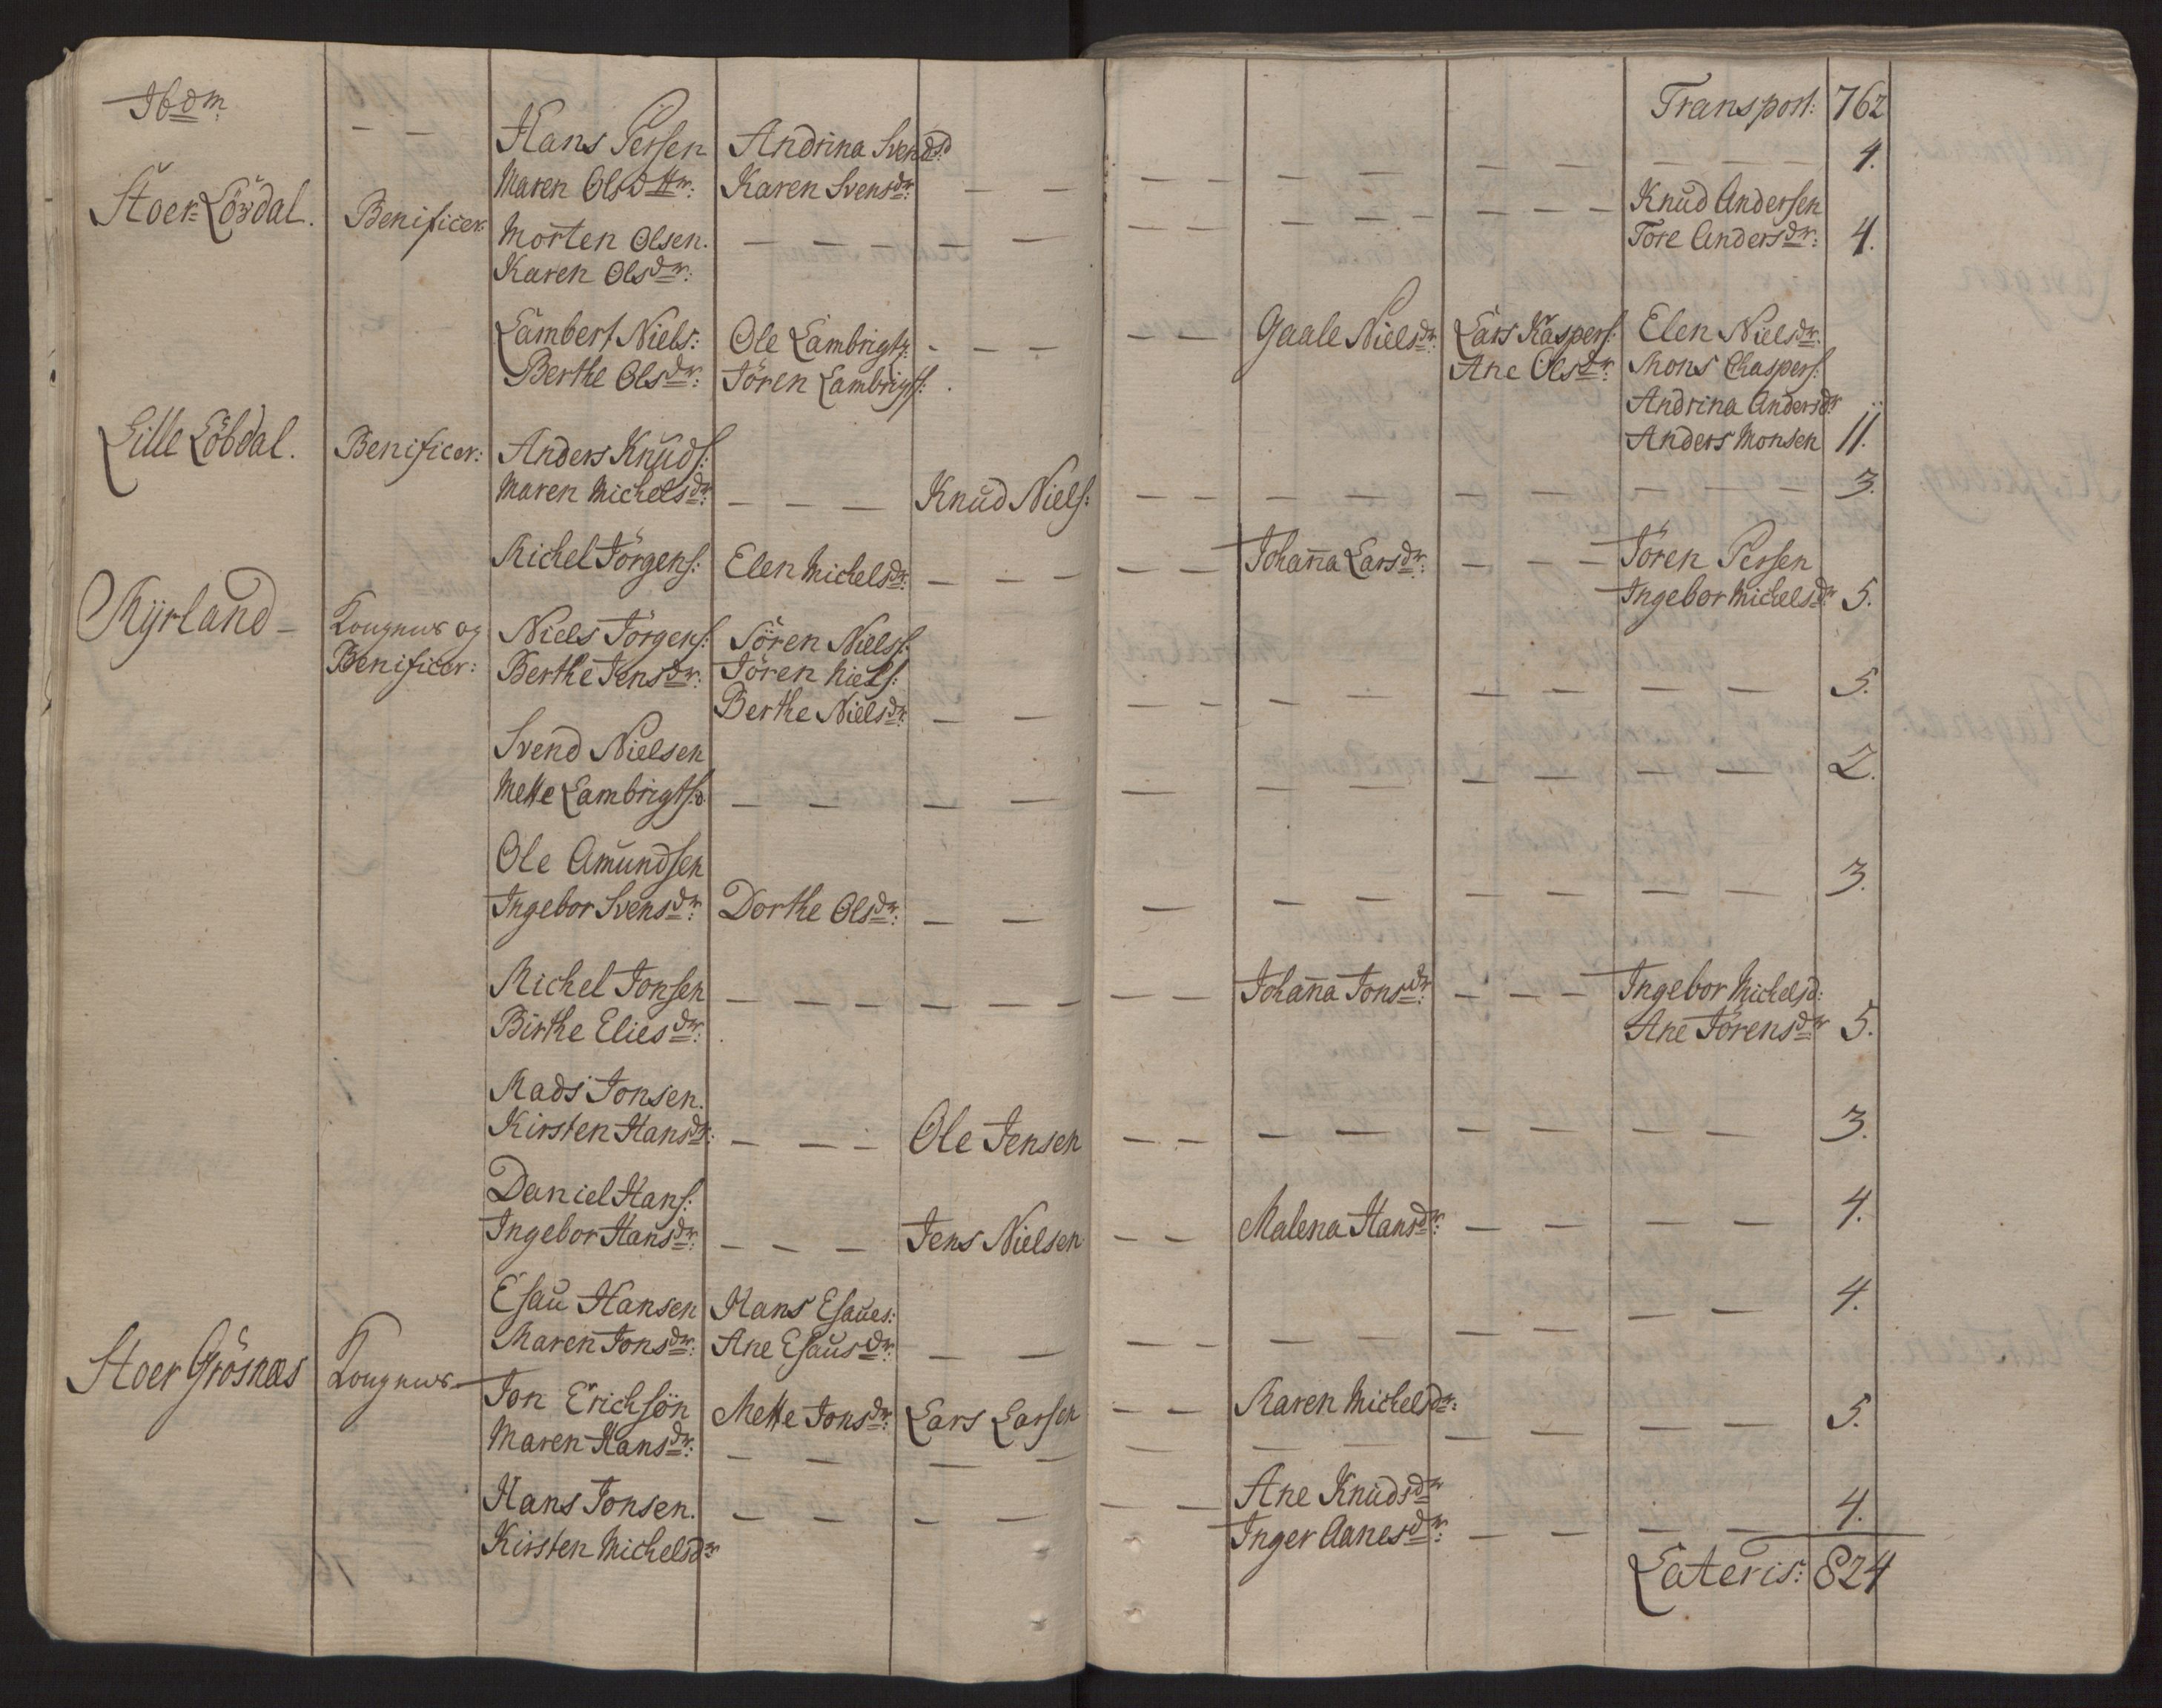 Ibdm. Transport: 762
Hans Persen Andrina Svendsd 4.
Maren Olsdttr: Karen Svensdr:
Stoer-Lövdal. Benificer: Morten Olsen. Knud Andersen
Karen Olsdr: Tore Andersdr: 4.
Lambert Niels: Ole Lambrigts: Gaale Nielsdr: Lars Kaspers: Elen Nielsdr:
Berthe Olsdr: Jören Lambrigts: Ane Olsdr: Mons Chaspers:
Andrina Andersdr
Lille Löbdal. Benificer: Anders Knuds: Anders Monsen 11.
Maren Michelsdr: Knud Niels: 3.
Michel Jörgens: Elen Michelsdr: Johanna Larsdr: Jören Persen
Ingebor Michelsdr: 5.
Myrland Kongens og Niels Jörgens: Sören Niels:
Benificer: Berthe Jensdr: Jören Niels: 5.
Berthe Nielsdr:
Svend Nielsen
Mette Lambrigts:d. 2.
Ole Amundsen
Ingebor Svensdr: Dorthe Olsdr: 3.
Michel Jonsen Johanna Jonsdr: Ingebor Michelsd:
Birthe Eliesdr: Ane Jörensdr 5.
Mads Jonsen.
Kirsten Hansdr: Ole Jensen 3.
Daniel Hans:
Ingebor Hansdr: Jens Nielsen Malena Hansdr: 4.
Esau Hansen Hans Esaues:
Maren Jonsdr: Ane Esausdr: 4.
Stoer Grösnæs Kongens Jon Erichsön Mette Jonsdr: Lars Larsen Maren Michelsdr: 5.
Maren Hansdr:
Hans Jonsen. Ane Knudsdr
Kirsten Michelsdr Inger Aanesdr: 4.
Lateris: 824